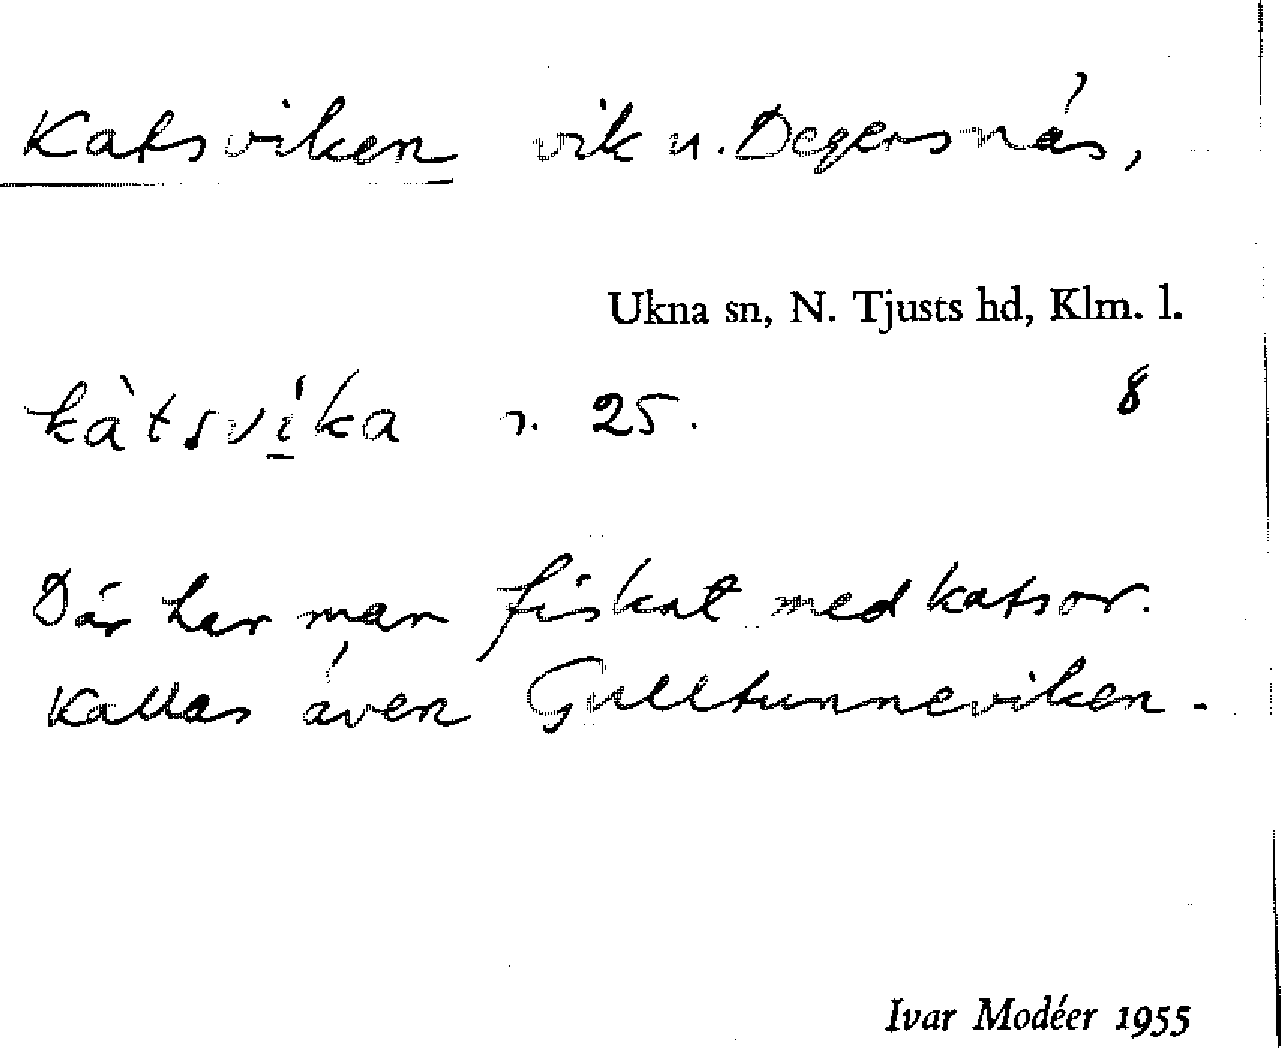 Katsviken vik u. Degersnäs,
Ukna sn, N. Tjusts hd, Klm. l.
kàtsvi̱ka n. 25. 8
Där har man fiskat med katsor.
Kallas även Gulltunneviken.
Ivar Modéer 1955